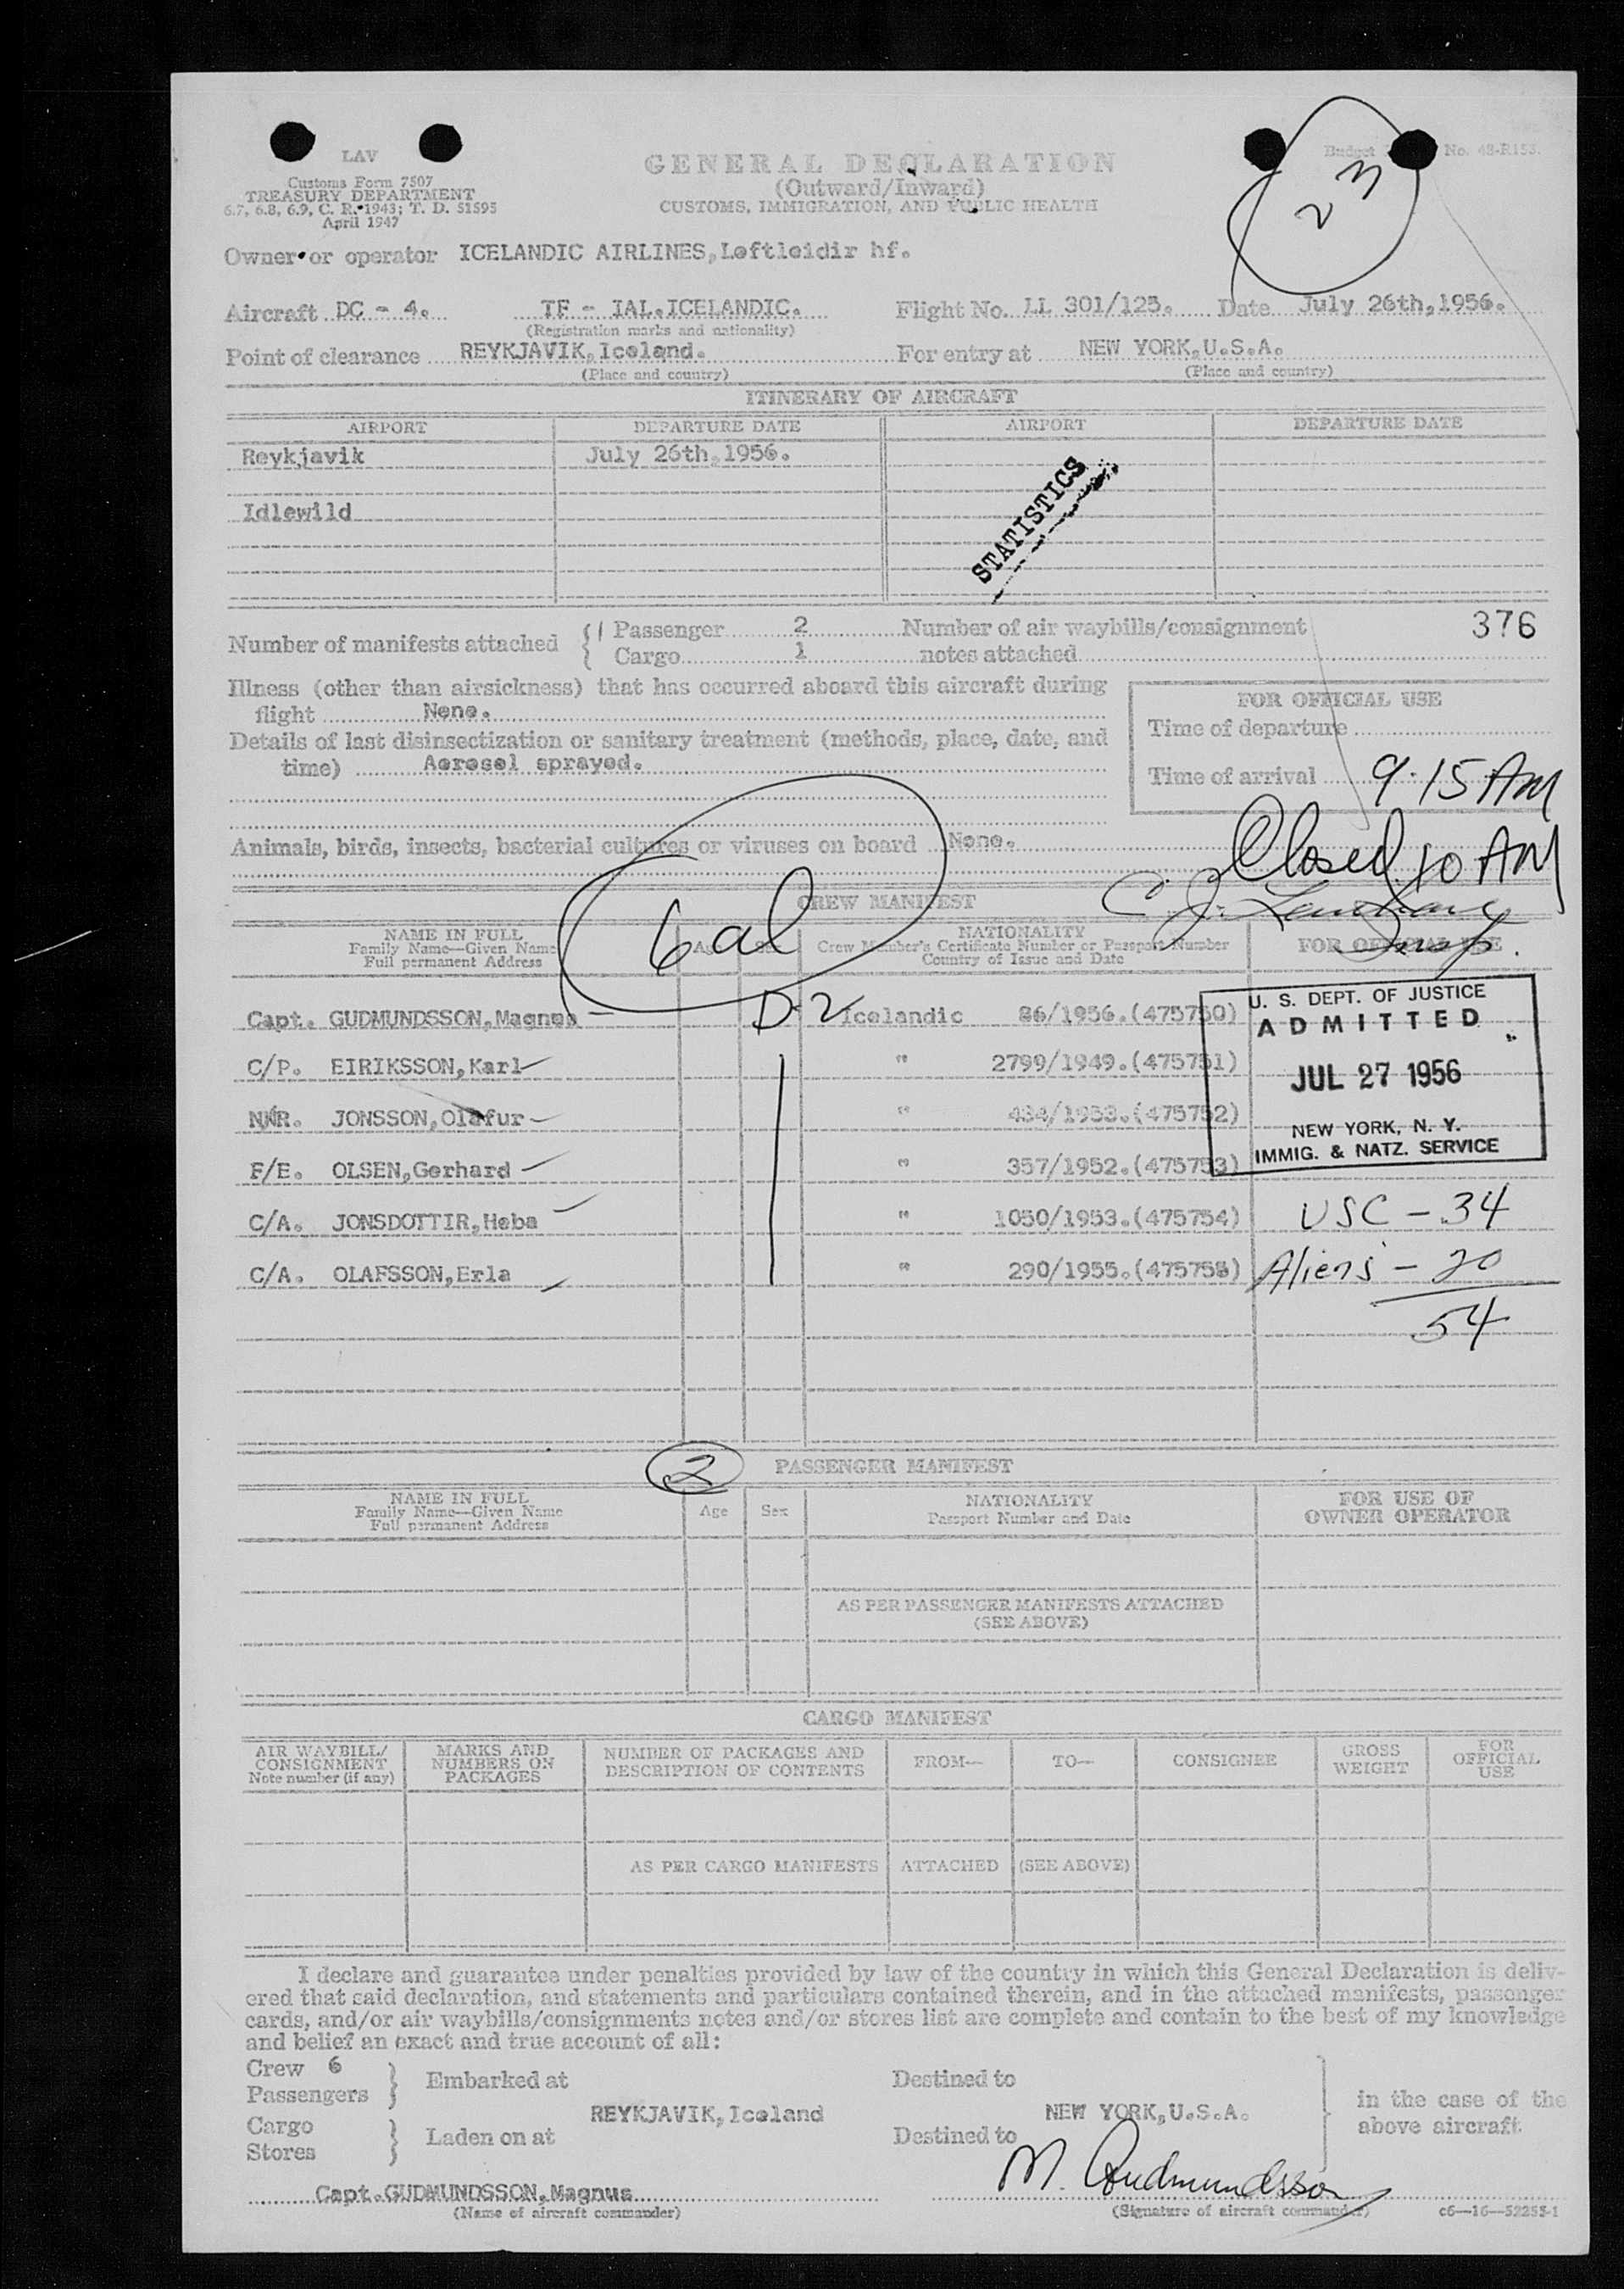 LAV
Customs Form 7507
TREASURY DEPARTMENT
6.7, 6.8, 6.9, C. R. 1943; T. D. 51595
April 1947
GENERAL DECLARATION
(Outward/Inward)
CUSTOMS, IMMIGRATION, AND PUBLIC HEALTH
Budget No. 48-R153.
23
Owner or operator ICELANDIC AIRLINES, Loftleidir hf.
Aircraft DC - 4. TF - IAL.ICELANDIC. Flight No. LL 301/125. Date July 26th,1956.
(Registration marks and nationality)
Point of clearance REYKJAVIK, Iceland. For entry at NEW YORK,U.S.A.
(Place and country) (Place and country)
ITINERARY OF AIRCRAFT
AIRPORT DEPARTURE DATE AIRPORT DEPARTURE DATE
Reykjavik July 26th,1956.
Idlewild
STATISTICS
Number of manifests attached { Passenger 2 Number of air waybills/consignment 376
Cargo 1 notes attached
Illness (other than airsickness) that has occurred aboard this aircraft during
flight None.
Details of last disinsectization or sanitary treatment (methods, place, date, and
time) Aerosol sprayed.
FOR OFFICIAL USE
Time of departure
Time of arrival 9.15 AM
Animals, birds, insects, bacterial cultures or viruses on board None.
Closed 10 AM
C. J.
Insp.
CREW MANIFEST
6 al
NAME IN FULL
Family Name—Given Name
Full permanent Address
Age Sex
NATIONALITY
Crew Member's Certificate Number or Passport Number
Country of Issue and Date
FOR OFFICIAL USE
Capt. GUDMUNDSSON,Magnus D-2 Icelandic 86/1956.(475750)
C/P. EIRIKSSON,Karl " 2799/1949.(475751)
N/R. JONSSON,Olafur " 434/1953.(475752)
F/E. OLSEN,Gerhard " 357/1952.(475753)
C/A. JONSDOTTIR,Heba " 1050/1953.(475754)
C/A. OLAFSSON,Erla " 290/1955.(475755)
U. S. DEPT. OF JUSTICE
ADMITTED
JUL 27 1956
NEW YORK, N. Y.
IMMIG. & NATZ. SERVICE
USC - 34
Aliens - 20
54
2
PASSENGER MANIFEST
NAME IN FULL
Family Name—Given Name
Full permanent Address
Age Sex
NATIONALITY
Passport Number and Date
FOR USE OF
OWNER OPERATOR
AS PER PASSENGER MANIFESTS ATTACHED
(SEE ABOVE)
CARGO MANIFEST
AIR WAYBILL/
CONSIGNMENT
Note number (if any)
MARKS AND
NUMBERS ON
PACKAGES
NUMBER OF PACKAGES AND
DESCRIPTION OF CONTENTS
FROM— TO— CONSIGNEE
GROSS
WEIGHT
FOR
OFFICIAL
USE
AS PER CARGO MANIFESTS ATTACHED (SEE ABOVE)
I declare and guarantee under penalties provided by law of the country in which this General Declaration is deliv-
ered that said declaration, and statements and particulars contained therein, and in the attached manifests, passenger
cards, and/or air waybills/consignments notes and/or stores list are complete and contain to the best of my knowledge
and belief an exact and true account of all:
Crew 6
Passengers
Embarked at
Destined to
REYKJAVIK,Iceland NEW YORK,U.S.A.
in the case of the
above aircraft.
Cargo
Stores
Laden on at
Destined to
Capt.GUDMUNDSSON,Magnus
(Name of aircraft commander)
M. Gudmundsson
(Signature of aircraft commander)
c6—16—52255-1